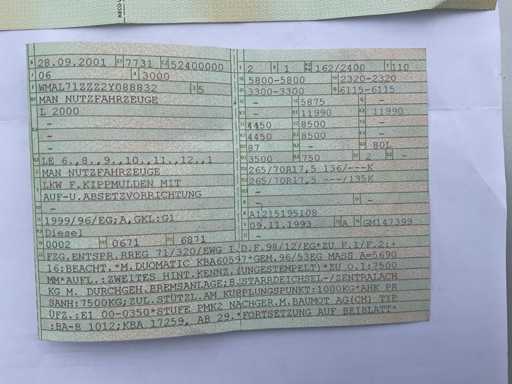 28.09.2001 7731 52400000
06 3000
WMAL71ZZZ2Y088832 5
MAN NUTZFAHRZEUGE
L 2000
–
–
–
LE 6.,8.,9.,10.,11.,12.,1
MAN NUTZFAHRZEUGE
LKW F.KIPPMULDEN MIT
AUF-U.ABSETZVORRICHTUNG
–
1999/96/EG;A,GKL:G1
Diesel
0002 0671 6871
2 1 162/2400 110
5800-5800 2320-2320
3300-3300 6115-6115
– 5875 –
– 11990 11990
4450 8500 –
4450 8500 –
87 – 80L
3500 750 2 –
265/70R17,5 136/---K
265/70R17,5 ---/135K
–
–
A1215195108
09.11.1993 A GM147399
FZG.ENTSPR.RREG 71/320/EWG I.D.F.98/12/EG*ZU F.1/F.2:+
16:BEACHT.*M.DUOMATIC KBA60597*GEM.96/53EG MASSE A=5690
MM*AUFL.:ZWEITES HINT.KENNZ.(UNGESTEMPELT)*ZU O.1:7500
KG M. DURCHGEH.BREMSANLAGE;B.STARRDEICHSEL-/ZENTRALACH
SANH:7500KG;ZUL.STÜTZL.AM KUPPLUNGSPUNKT:1000KG*AHK PR
ÜFZ.:E1 00-0350*STUFE PMK2 NACHGER.M.BAUMOT AG(CH) TYP
:BA-B 1012;KBA 17259, AB 29.*FORTSETZUNG AUF BEIBLATT*